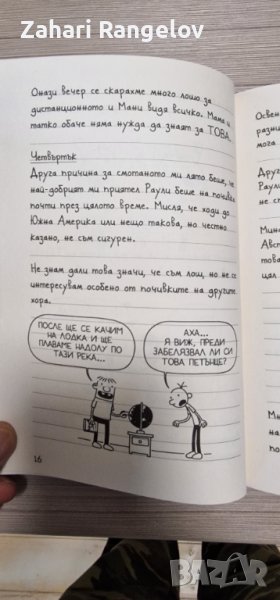 Zahari Rangelov
Онази вечер се скарахме много лошо за
дистанционното и Мани видя всичко. Мама и
татко обаче няма нужда да знаят за ТОВА.
Четвъртък
Друга причина за смотаното ми лято беше, че
най-добрият ми приятел Раули беше на почивка
почти през цялото време. Мисля, че ходи до
Южна Америка или нещо такова, но честно
казано, не съм сигурен.
Не знам дали това значи, че съм лош, но не се
интересувам особено от почивките на другите
хора.
ПОСЛЕ ЩЕ СЕ КАЧИМ
НА ЛОДКА И ЩЕ
ПЛАВАМЕ НАДОЛУ ПО
ТАЗИ РЕКА...
АХА...
Я ВИЖ, ПРЕДИ
ЗАБЕЛЯЗВАЛ ЛИ СИ
ТОВА ПЕТЪНЦЕ?
16
Освен
разни
мога
Друг
Раули
не сп
Мин
Авст
това
цял
bazar